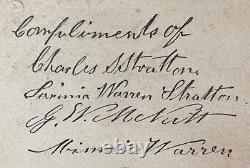 Compliments of
Charles S Stratton,
Lavinia Warren Stratton.
G. W. M. Nutt
Minnie Warren